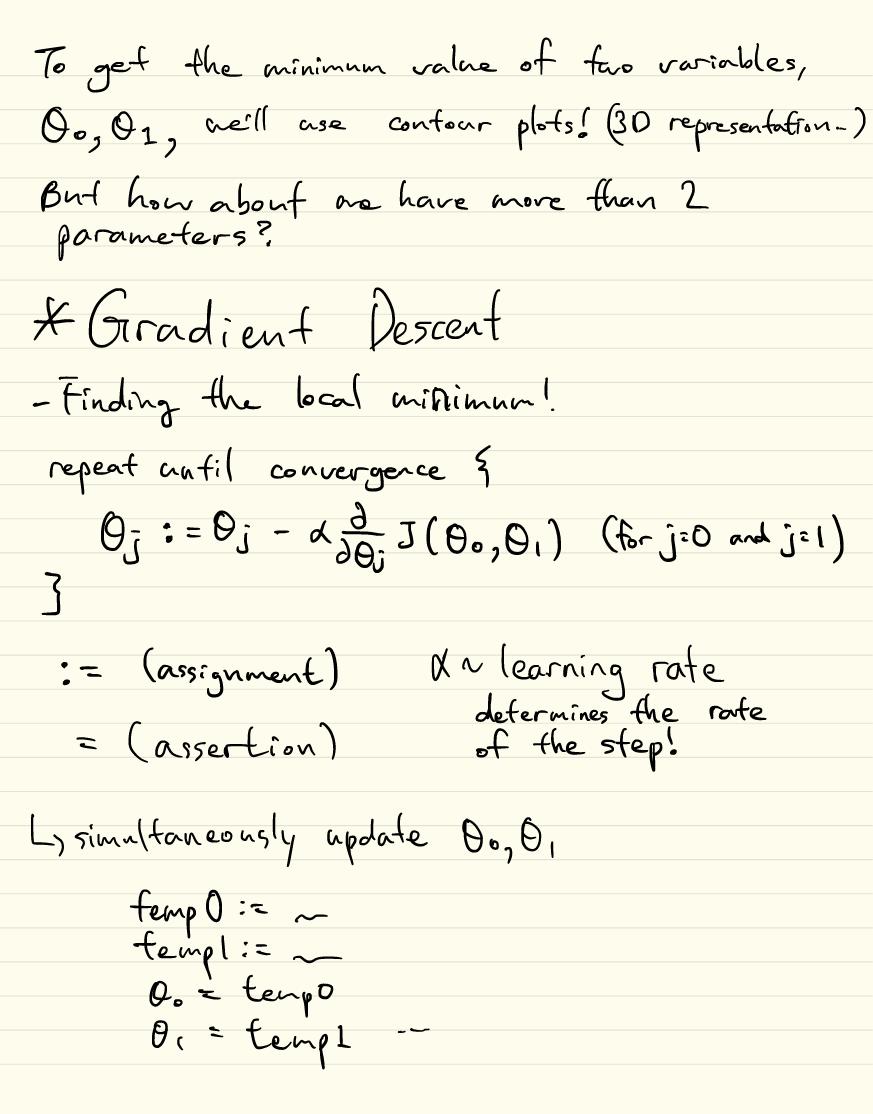 To get the minimum value of two variables,
θ₀, θ₁, we'll use contour plots! (3D representation~)
But how about we have more than 2
parameters?
* Gradient Descent
- Finding the local minimum!
repeat until convergence {
θⱼ := θⱼ - α ∂/∂θⱼ J(θ₀, θ₁) (for j=0 and j=1)
}
:= (assignment) α ~ learning rate
determines the rate
= (assertion) of the step!
↳ simultaneously update θ₀, θ₁
temp0 := ~
temp1 := ~
θ₀ = temp0
θ₁ = temp1 --